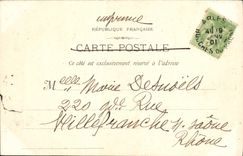 imprimé
RÉPUBLIQUE FRANÇAISE
CARTE POSTALE
Ce côté est exclusivement réservé à l'adresse
Melle Marie
220 gde Rue
Villefranche s/ Saône
Rhône